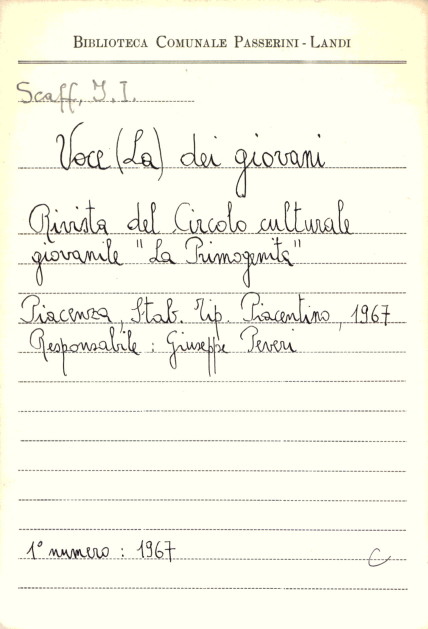 BIBLIOTECA COMUNALE PASSERINI - LANDI
Scaff. J. I.
Voce (La) dei giovani
Rivista del Circolo culturale
giovanile "La Primogenita"
Piacenza, Stab. Tip. Piacentino, 1967
Responsabile : Giuseppe Peveri
1° numero : 1967
C